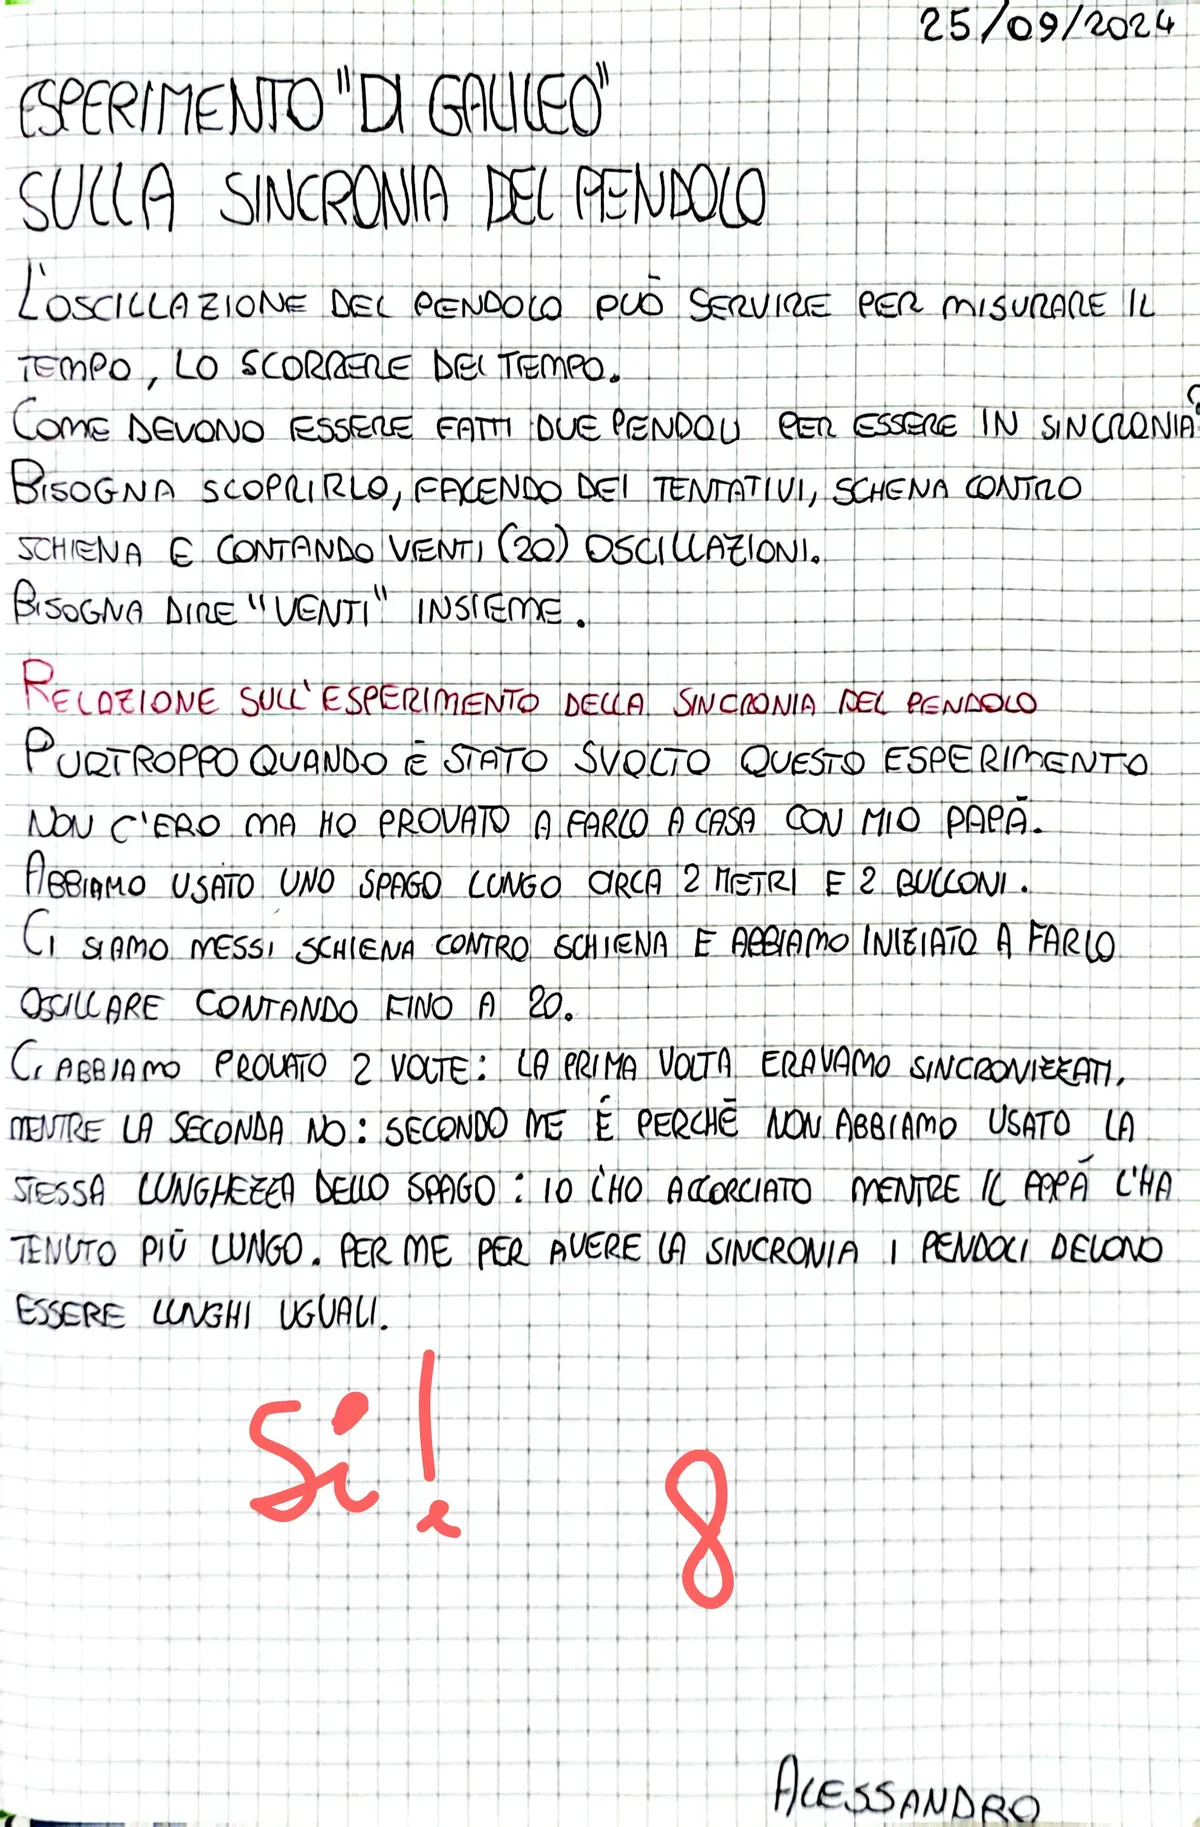 25/09/2024
ESPERIMENTO "DI GALILEO"
SULLA SINCRONIA DEL PENDOLO
L'OSCILLAZIONE DEL PENDOLO PUÒ SERVIRE PER MISURARE IL
TEMPO, LO SCORRERE DEL TEMPO.
COME DEVONO ESSERE FATTI DUE PENDOLI PER ESSERE IN SINCRONIA?
BISOGNA SCOPRIRLO, FACENDO DEI TENTATIVI, SCHENA CONTRO
SCHIENA E CONTANDO VENTI (20) OSCILLAZIONI.
BISOGNA DIRE "VENTI" INSIEME.
RELAZIONE SULL'ESPERIMENTO DELLA SINCRONIA DEL PENDOLO
PURTROPPO QUANDO È STATO SVOLTO QUESTO ESPERIMENTO
NON C'ERO MA HO PROVATO A FARLO A CASA CON MIO PAPÀ.
ABBIAMO USATO UNO SPAGO LUNGO CIRCA 2 METRI E 2 BULLONI.
CI SIAMO MESSI SCHIENA CONTRO SCHIENA E ABBIAMO INIZIATO A FARLO
OSCILLARE CONTANDO FINO A 20.
CI ABBIAMO PROVATO 2 VOLTE: LA PRIMA VOLTA ERAVAMO SINCRONIZZATI,
MENTRE LA SECONDA NO: SECONDO ME È PERCHÈ NON ABBIAMO USATO LA
STESSA LUNGHEZZA DELLO SPAGO: IO L'HO ACCORCIATO MENTRE IL PAPÀ L'HA
TENUTO PIÙ LUNGO. PER ME PER AVERE LA SINCRONIA I PENDOLI DEVONO
ESSERE LUNGHI UGUALI.
Si!
8
ALESSANDRO